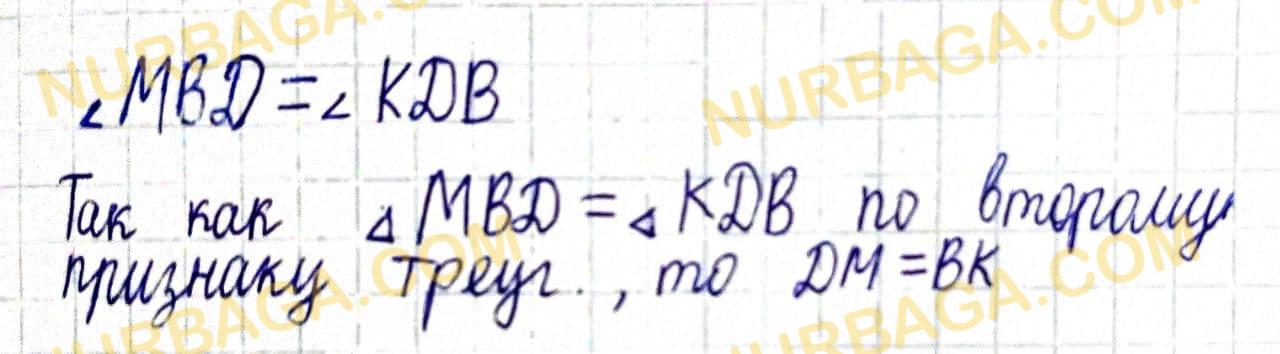 ∠MBD = ∠ KDB
Так как △ MBD = △ KDB по второму
признаку треуг., то DM = BK
NURBAGA.COM
NURBAGA.COM
NURBAGA.COM
NURBAGA.COM